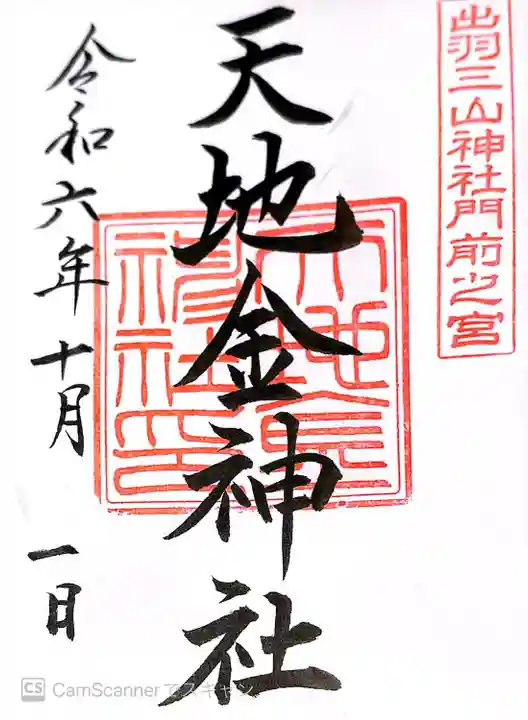 出羽三山神社門前之宮
天地金神社
令和六年十月一日
CS CamScannerでスキャン